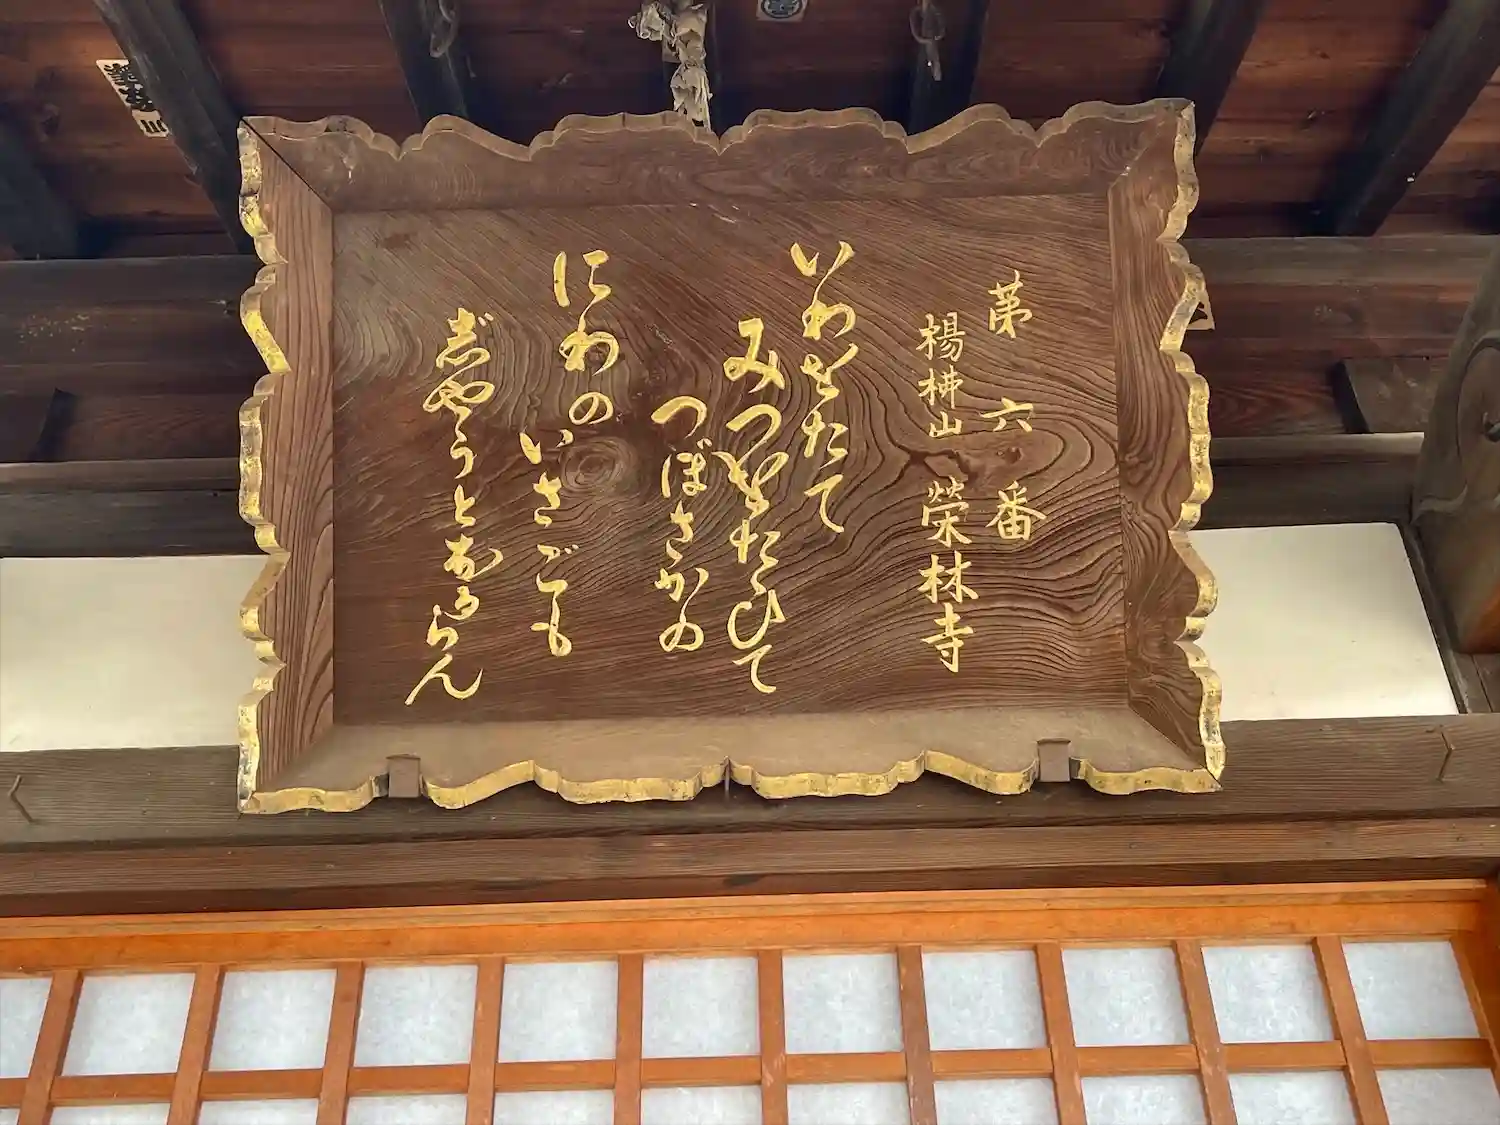 第六番
楊柳山 榮林寺
いわをたて
みづをたゝひて
つぼさかの
にわのいさごも
じやうとなるらん